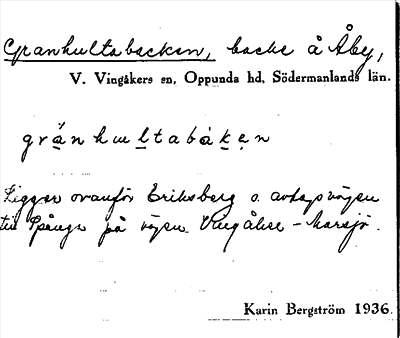 Granhultabacken, backe å Åby,
V. Vingåkers sn, Oppunda hd, Södermanlands län.
grä̀nhultabákęn
Ligger ovanför Eriksberg o. avtagsvägen
till Spånga på vägen Vingåker – Marsjö.
Karin Bergström 1936.